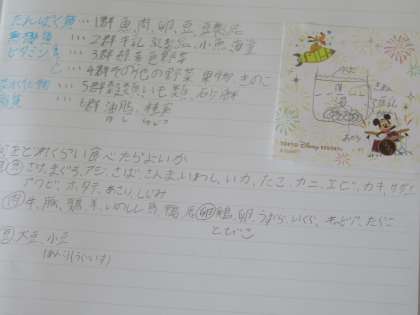 たんぱく質…1群 魚、肉、卵、豆、豆製品
無機質…2群 牛乳、乳製品、小魚、海藻
ビタミン…3群 緑黄色野菜
…4群 その他の野菜、果物、きのこ
炭水化物…5群 穀類、いも類、砂糖
脂質…6群 油脂、種実
TOKYO Disney RESORT
をどれくらい食べたらよいか
魚 さけ、まぐろ、アジ、さば、さんま、いわし、いか、たこ、カニ、エビ、カキ、サザエ
アワビ、ホタテ、あさり、しじみ
肉 牛、豚、鶏、羊、いのしし、馬、鴨 卵 鶏卵、うずら、いくら、キャビア、たらこ
とびこ
豆 大豆、小豆